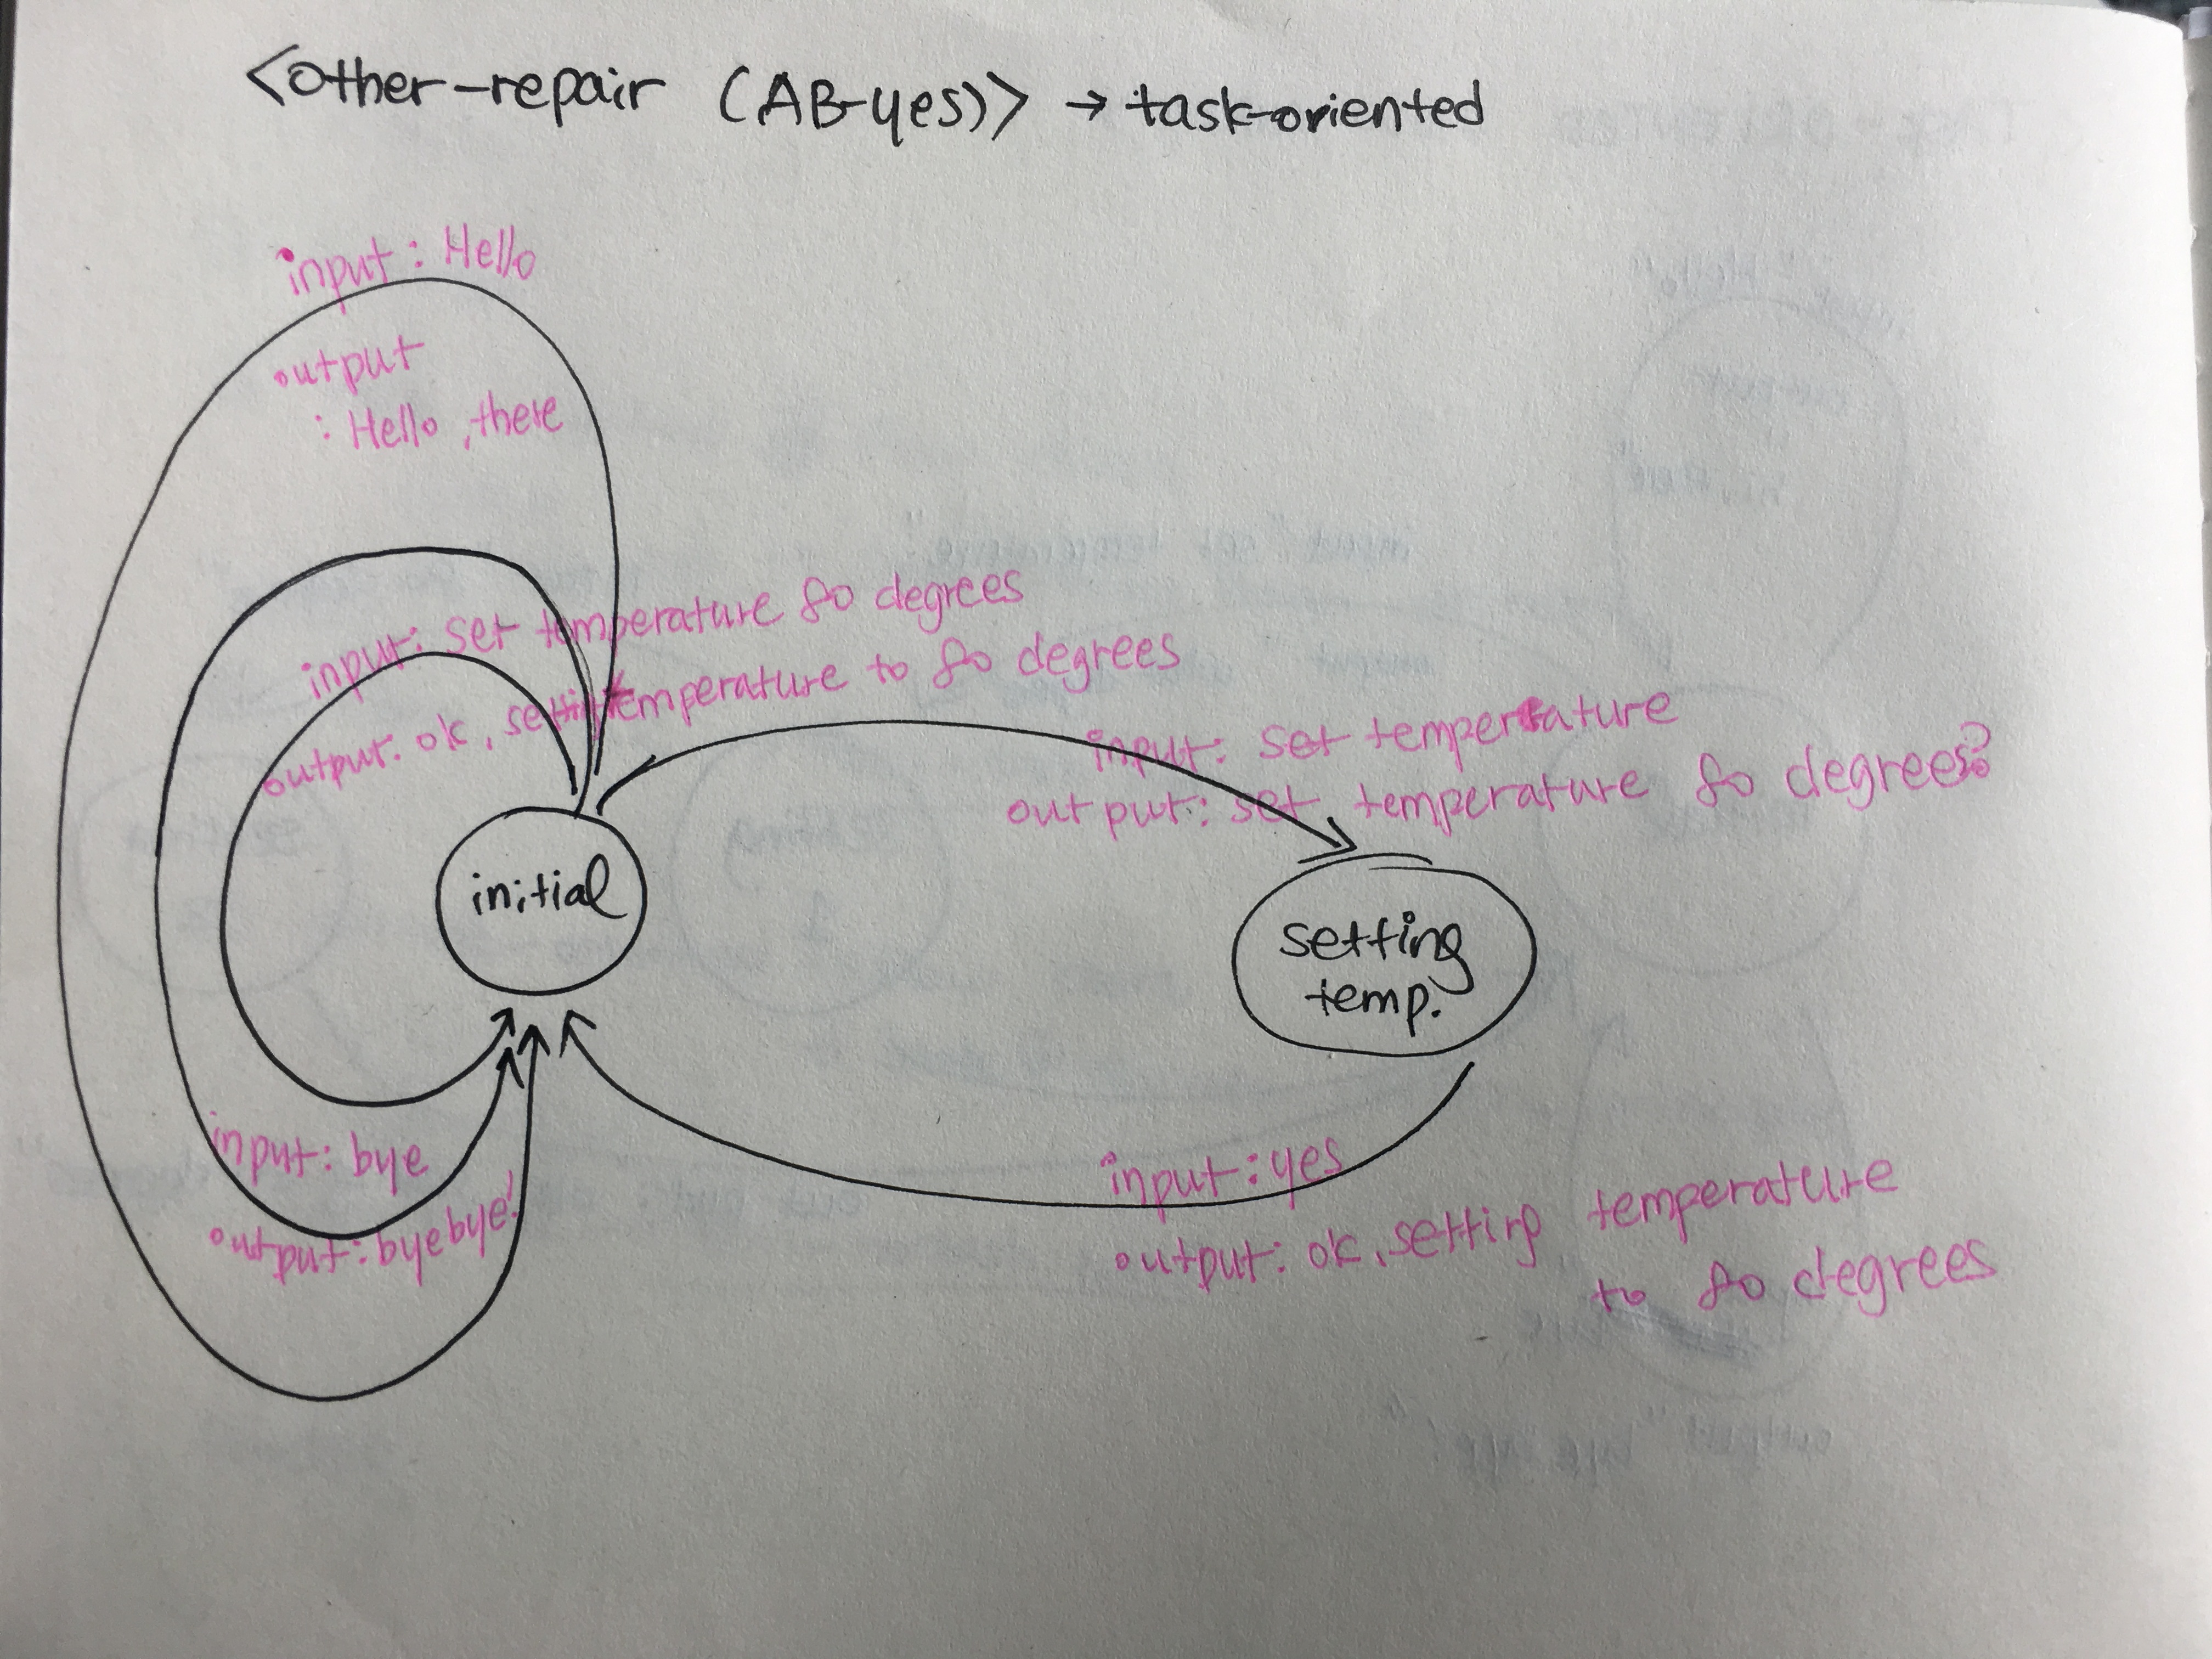 <other-repair (AB-yes)> → task-oriented
input: Hello
output
: Hello, there
input: set temperature 80 degrees
output: ok, setting temperature to 80 degrees
input: set temperature
output: set temperature 80 degrees?
initial
setting
temp.
input: bye
output: byebye!
input: yes
output: ok, setting temperature
to 80 degrees